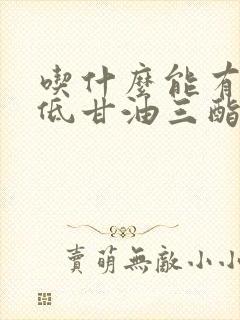 喫什麼能有
低甘油三酯
賣萌無敵小小